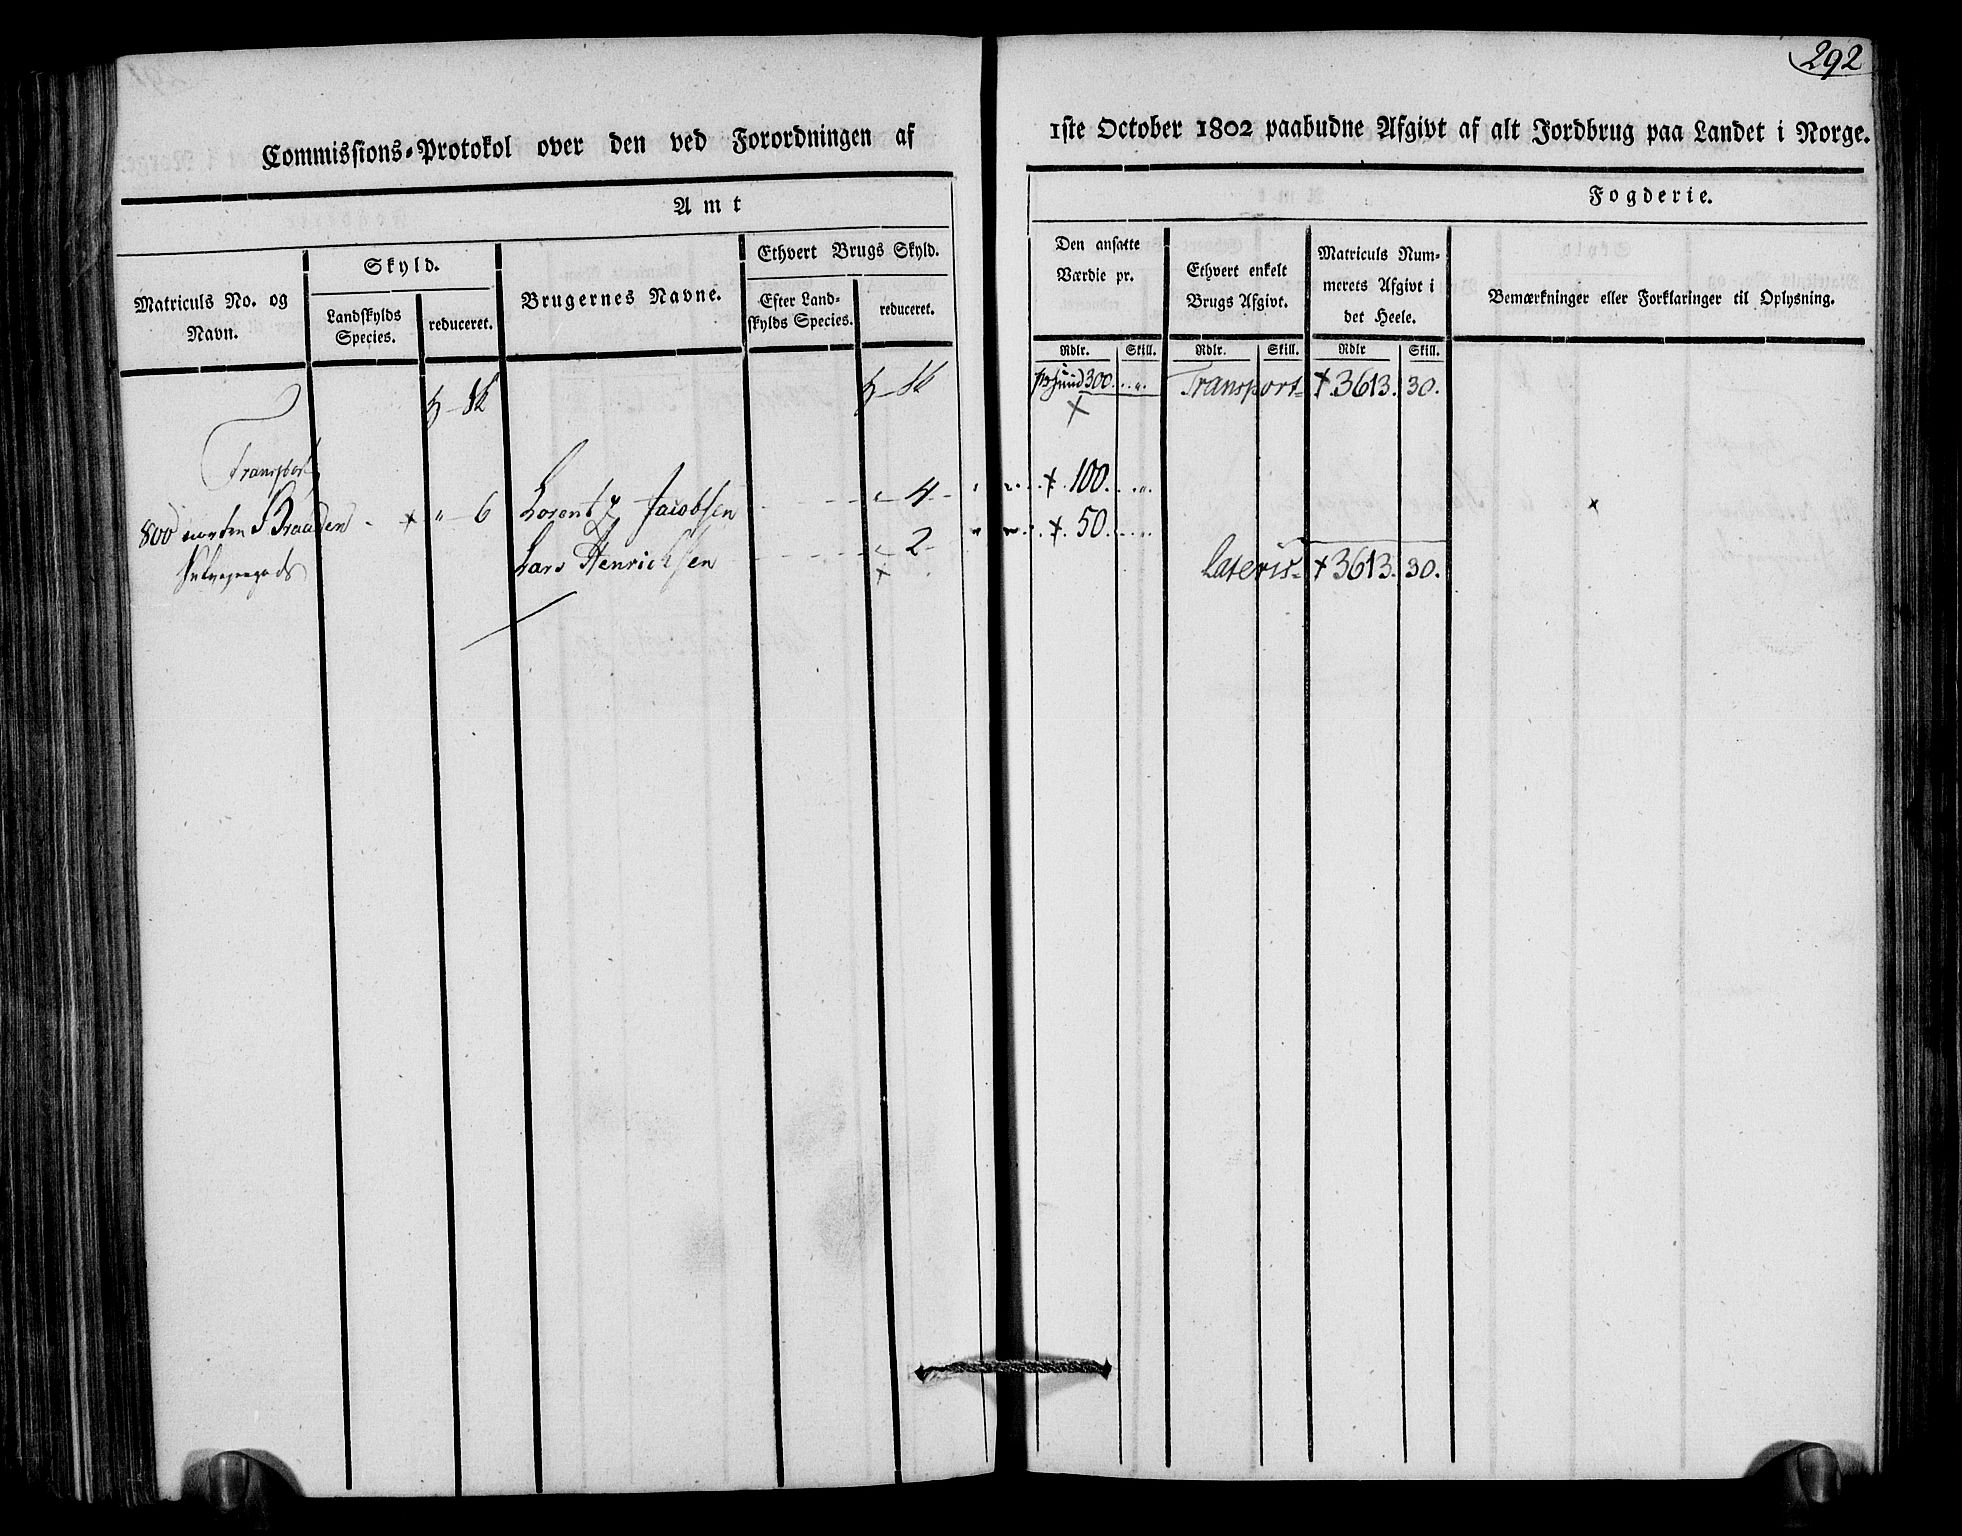 292
Commissions-Protokol over den ved Forordningen af
1ste October 1802 paabudne Afgivt af alt Jordbrug paa Landet i Norge.
Amt
Fogderie.
Matriculs No. og Navn.
Skyld.
Landskylds Species.
reduceret.
Brugernes Navne.
Ethvert Brugs Skyld.
Efter Landskylds Species.
reduceret.
Den ansatte Værdie pr.
Ethvert enkelt Brugs Afgivt.
Matriculs Nummerets Afgivt i det Heele.
Bemærkninger eller Forklaringer til Oplysning.
Rdlr. Skill. Rdlr. Skill. Rdlr Skill.
300. Transport 3613. 30.
Transport
800 Braaden 6 Lorentz Jacobsen 4 100.
Lars Henrichsen 2 50.
Lateris 3613. 30.